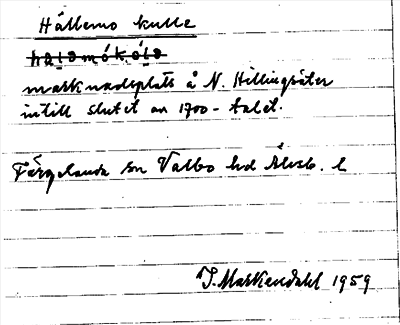 Hållemo kulle
marknadsplats å N. Hillingsäter
intill slutet av 1700-talet.
Färgelanda sn Valbo hd Älvsb. l
J. Markendahl 1959